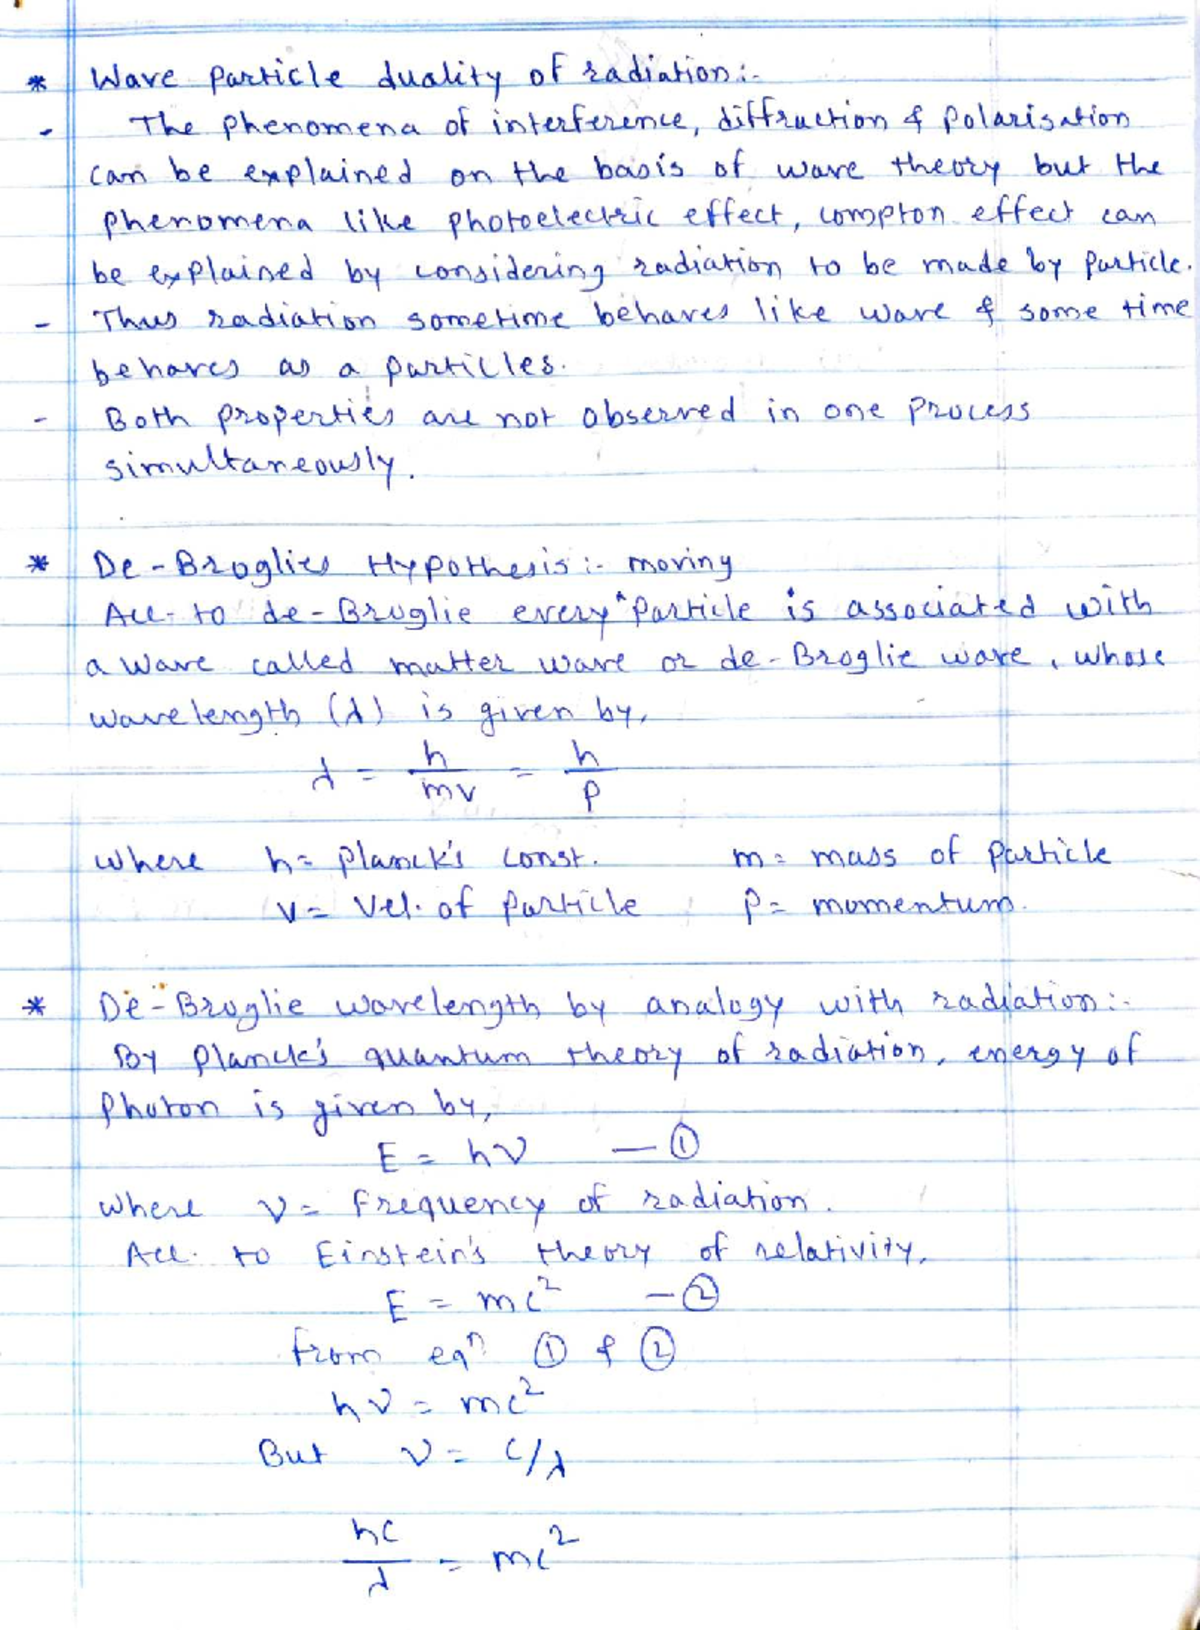 * Wave particle duality of radiation:-
- The phenomena of interference, diffraction & polarisation
can be explained on the basis of wave theory but the
phenomena like photoelectric effect, compton effect can
be explained by considering radiation to be made by particle.
- Thus radiation sometime behaves like wave & some time
behaves as a particles.
- Both properties are not observed in one process
simultaneously.
* De-Broglies Hypothesis:- moving
Acc. to de-Broglie every ^ particle is associated with
a wave called matter wave or de-Broglie wave, whose
wavelength (λ) is given by,
λ = h/mv = h/p
where h = planck's const. m = mass of particle
v = vel. of particle p = momentum.
* De-Broglie wavelength by analogy with radiation:-
By planck's quantum theory of radiation, energy of
photon is given by,
E = hν — ①
where ν = frequency of radiation.
Acc. to Einstein's theory of relativity,
E = mc² — ②
from eqⁿ ① & ②
hν = mc²
But ν = c/λ
hc/λ = mc²